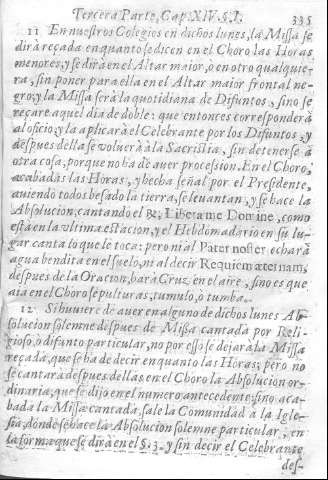 Tercera Parte, Cap. XIV. §. I. 335
11 En nuestros Colegios en dichos lunes, la Missa se
dirà reçada en quanto se dicen en el Choro las Horas
menores, y se dirà en el Altar maior, ò en otro qualquie-
ra, sin poner para ella en el Altar maior frontal ne-
gro; y la Missa serà la quotidiana de Difuntos, sino se
reçare aquel dia de doble: que entonces corresponderà
al oficio; y la aplicarà el Celebrante por los Difuntos, y
despues della se volverà à la Sacristia, sin detenerse à
otra cosa, porque no ha de aver procession. En el Choro,
acabadas las Horas, y hecha señal por el Presidente,
aviendo todos besado la tierra, se levantan, y se hace la
Absolucion, cantando el ℟. Libera me Domine, como
està en la ultima estacion, y el Hebdomadario en su lu-
gar canta lo que le toca: pero ni al Pater noster echarà
agua bendita en el suelo, ni al decir Requiem æternam,
despues de la Oracion, harà Cruz en el aire, sino es que
aia en el Choro sepulturas, tumulo, ò tumba.
12 Si huviere de aver en alguno de dichos lunes Ab-
solucion solemne despues de Missa cantada por Reli-
gioso, ò difunto particular, no por esso se dejarà la Missa
reçada, que se ha de decir en quanto las Horas; pero no
se cantarà despues dellas en el Choro la Absolucion or-
dinaria, que se dijo en el numero antecedente; sino aca-
bada la Missa cantada, sale la Comunidad à la Igle-
sia, donde se hace la Absolucion solemne particular, en
la forma que se dirà en el §. 3. y sin decir el Celebrante
des-